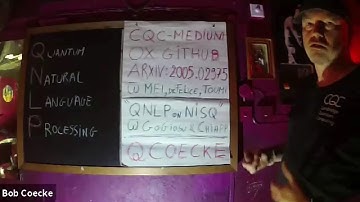 QUANTUM
NATURAL
LANGUAGE
PROCESSING
CQC-MEDIUM
OX GITHUB
ARXIV:2005.02975
W MEI, DEFELICE, TOUMI
"QNLP ON NISQ"
Q COECKE
CQC
Bob Coecke